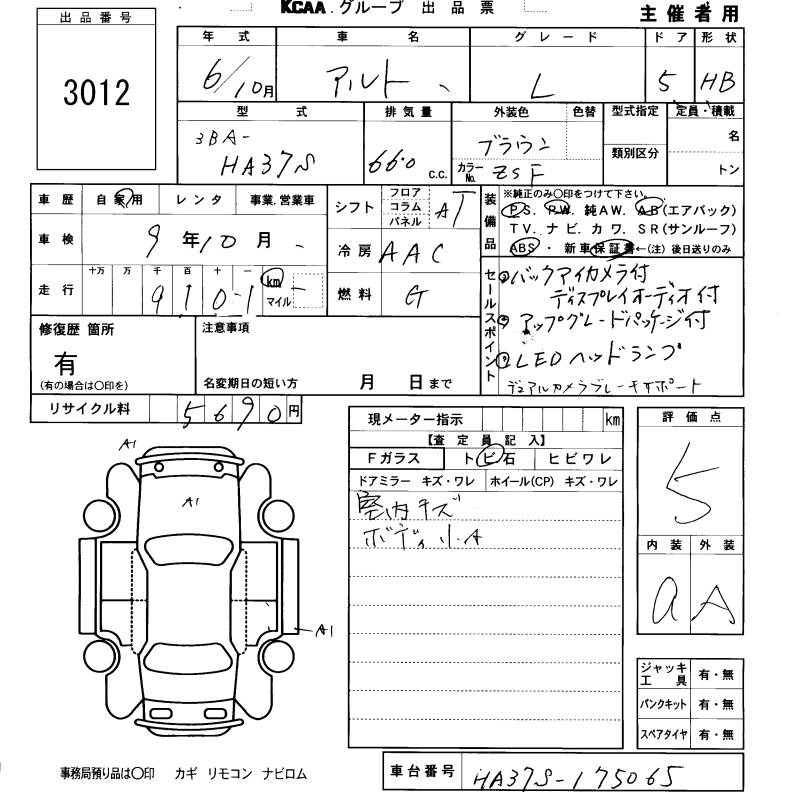 KCAA.グループ 出品票
主催者用
出品番号
3012
年式 車名 グレード ドア 形状
6/10月 アルト L 5 HB
型式 排気量 外装色 色替 型式指定 定員・積載
3BA-
HA37S 660 c.c. ブラウン
カラーNo. ZSF 類別区分 名
トン
車歴 自家用 レンタ 事業.営業車
シフト フロア コラム パネル AT
車検 9年10月
冷房 AAC
走行 十万 万 千 百 十 一
9101 km マイル
燃料 G
装備品 ※純正のみ〇印をつけて下さい。
PS. PW. 純AW. AB(エアバック)
TV. ナビ. カワ. SR(サンルーフ)
ABS・新車保証書←(注) 後日送りのみ
セールスポイント
バックアイカメラ付
ディスプレイオーディオ付
アップグレードパッケージ付
LEDヘッドランプ
デュアルカメラブレーキサポート
修復歴 箇所
有
(有の場合は〇印を)
注意事項
名変期日の短い方 月 日まで
リサイクル料 5690円
現メーター指示 km
【査定員記入】
Fガラス トビ石 ヒビワレ
ドアミラー キズ・ワレ ホイール(CP) キズ・ワレ
室内キズ
ボディ小A
評価点
5
内装 外装
a A
A1
A1
A1
ジャッキ工具 有・無
パンクキット 有・無
スペアタイヤ 有・無
事務局預り品は〇印 カギ リモコン ナビロム
車台番号 HA37S-175065